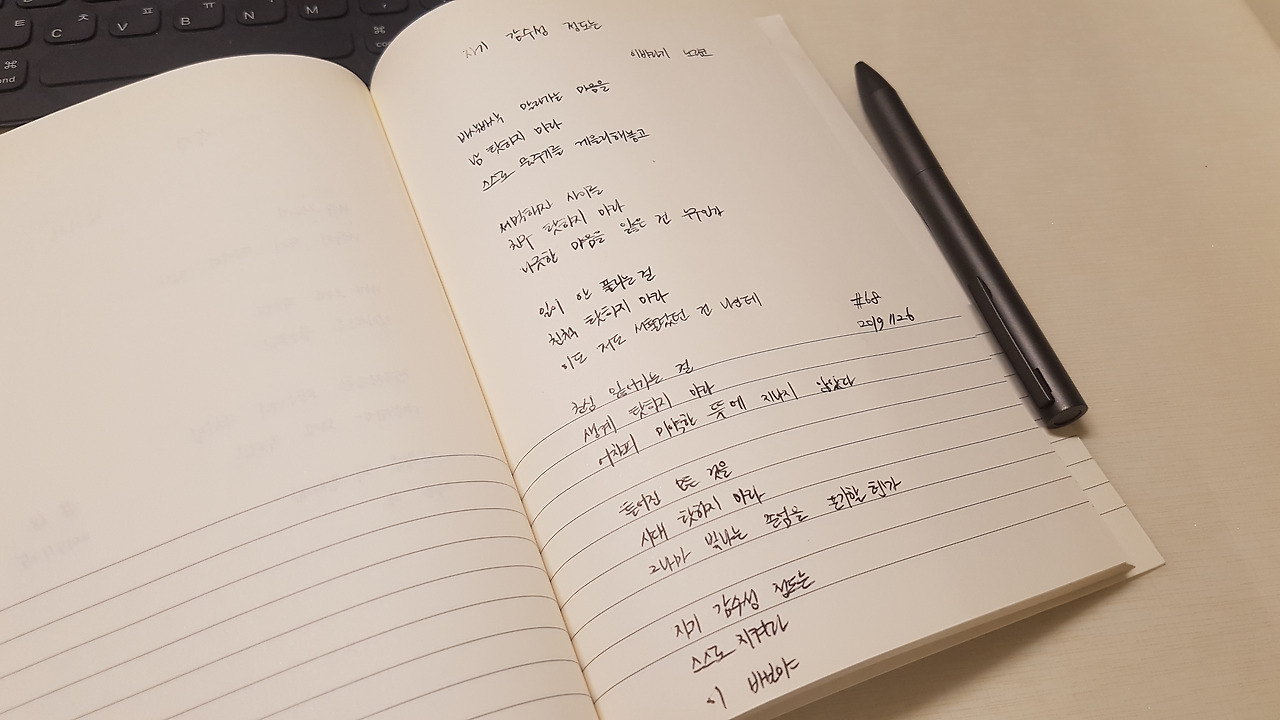 ㅌ C ㅊ V ㅍ B ㅠ N ㅜ M ㅡ
⌘
⌘
자기 감수성 정도는
이바라기 노리코
바싹바싹 말라가는 마음을
남 탓하지 마라
스스로 물주기를 게을리해놓고
서먹해진 사이를
친구 탓하지 마라
나긋한 마음을 잃은 건 누구인가
일이 안 풀리는 걸
친척 탓하지 마라
이도 저도 서툴렀던 건 나인데
#68
2019 11.26
초심 잃어가는 걸
생계 탓하지 마라
어차피 미약한 뜻에 지나지 않았다
틀어진 모든 것을
시대 탓하지 마라
그나마 빛나는 존엄을 포기할 텐가
자기 감수성 정도는
스스로 지켜라
이 바보야